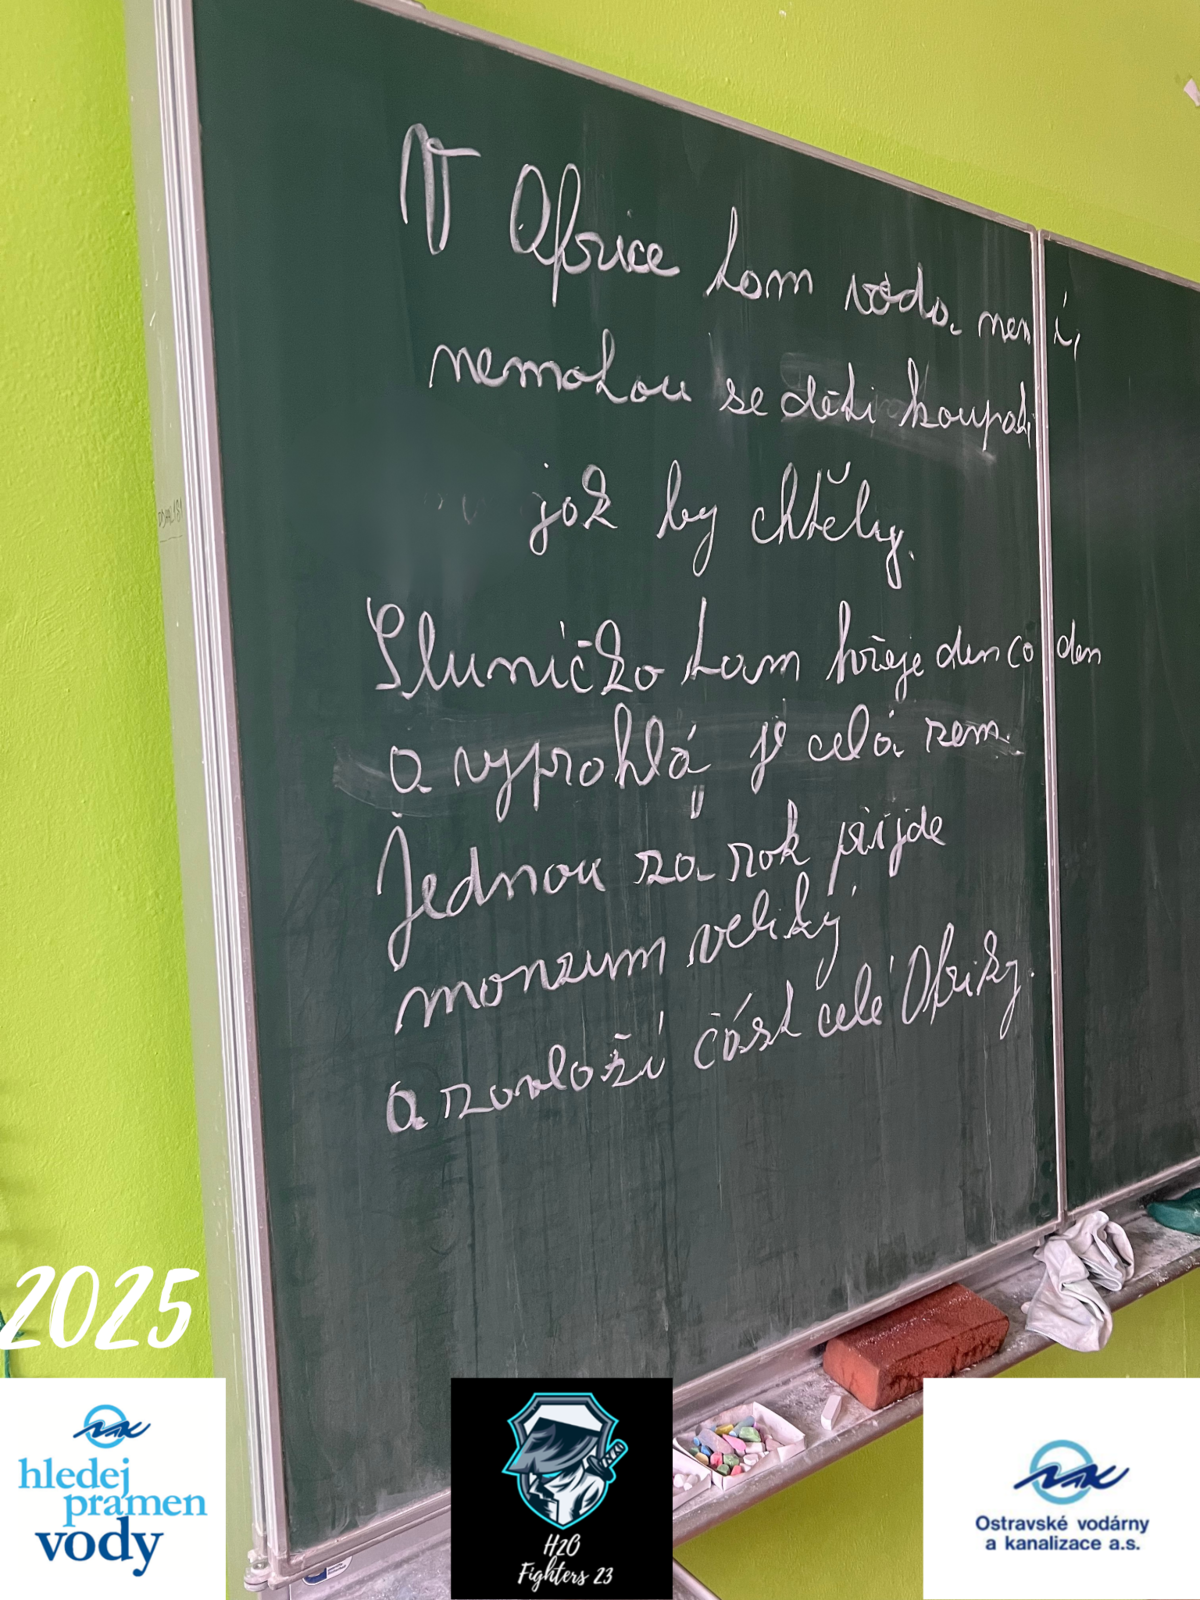 V Africe tam voda není,
nemohou se děti koupat
jak by chtěly.
Sluníčko tam hřeje den co den
a vyprahlá je celá zem.
Jednou za rok přijde
monzum veliký
a zavlaží část celé Afriky.
2025
hledej
pramen
vody
H2O
Fighters 23
Ostravské vodárny
a kanalizace a.s.